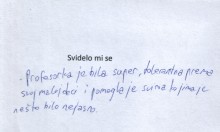 Svidelo mi se
- Profesorka je bila super, tolerantna prema
svoj maloj deci i pomogla je svima kojima je
nešto bilo nejasno.